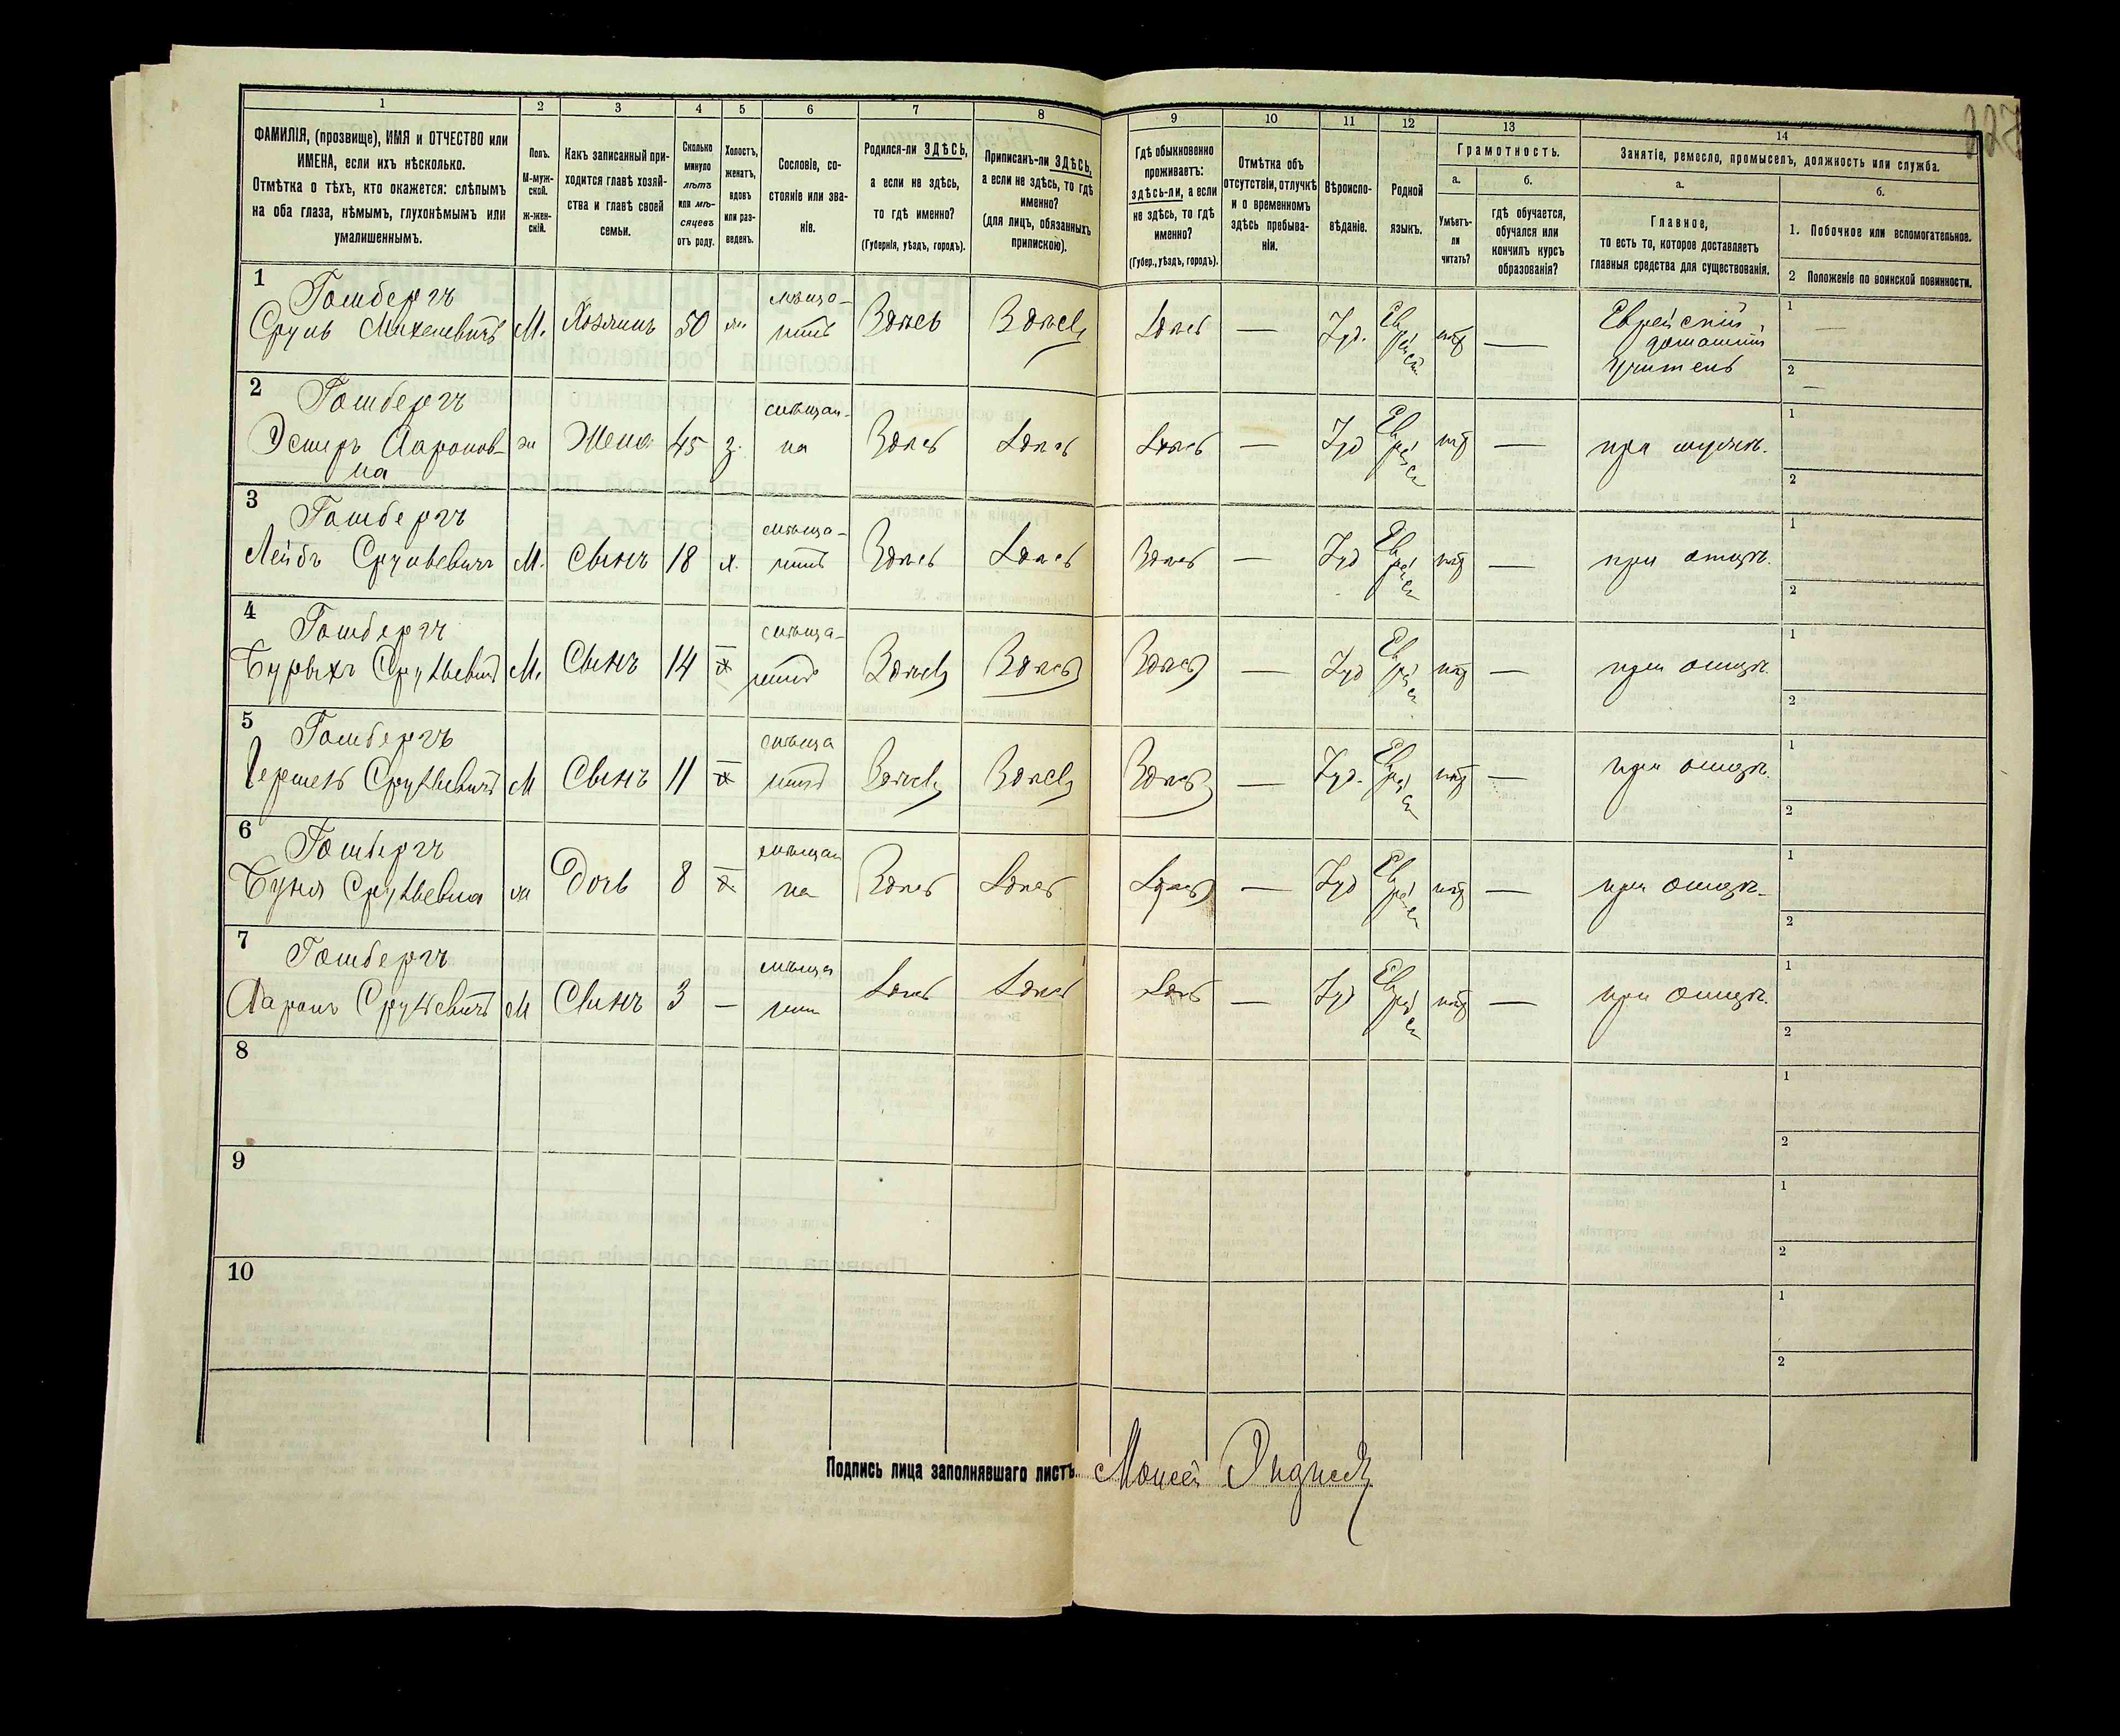 1 2 3 4 5 6 7 8 9 10 11 12 13 14
ФАМИЛІЯ, (прозвище), ИМЯ и ОТЧЕСТВО или
ИМЕНА, если ихъ нѣсколько.
Отмѣтка о тѣхъ, кто окажется: слѣпымъ
на оба глаза, нѣмымъ, глухонѣмымъ или
умалишеннымъ.
Полъ.
М-муж-
ской.
ж-жен-
скій.
Какъ записанный при-
ходится главѣ хозяй-
ства и главѣ своей
семьи.
Сколько
минуло
лѣтъ
или мѣ-
сяцевъ
отъ роду.
Холостъ,
женатъ,
вдовъ
или раз-
веденъ.
Сословіе, со-
стояніе или зва-
ніе.
Родился-ли ЗДѢСЬ,
а если не здѣсь,
то гдѣ именно?
(Губернія, уѣздъ, городъ).
Приписанъ-ли ЗДѢСЬ,
а если не здѣсь, то гдѣ
именно?
(для лицъ, обязанныхъ
припискою).
Гдѣ обыкновенно
проживаетъ:
здѣсь-ли, а если
не здѣсь, то гдѣ
именно?
(Губер., уѣздъ, городъ).
Отмѣтка объ
отсутствіи, отлучкѣ
и о временномъ
здѣсь пребыва-
ніи.
Вѣроиспо-
вѣданіе.
Родной
языкъ.
Грамотность.
а.
Умѣетъ-
ли
читать?
б.
гдѣ обучается,
обучался или
кончилъ курсъ
образованія?
Занятіе, ремесло, промыселъ, должность или служба.
а.
Главное,
то есть то, которое доставляетъ
главныя средства для существованія.
б.
1. Побочное или вспомогательное.
2 Положеніе по воинской повинности.
1
Гомбергъ мѣща- Еврейскій 1
Сруль Михелевичъ М. Хозяинъ 50 нинъ Здѣсь Здѣсь Здѣсь — Іуд. Еврейскій нѣтъ — домашній
учитель 2
2
Гомбергъ мѣщан- 1
Эстеръ Ааронов- ж Жена 45 з. ка Здѣсь Здѣсь Здѣсь — Іуд Еврейск нѣтъ — при мужѣ.
на 2
3
Гомбергъ мѣща- 1
Лейбъ Срулевичъ М. Сынъ 18 х. нинъ Здѣсь Здѣсь Здѣсь — Іуд Еврейск нѣтъ — при отцѣ.
2
4
Гомбергъ мѣща- 1
Срулевичъ М. Сынъ 14 х нинъ Здѣсь Здѣсь Здѣсь — Іуд Еврейск нѣтъ — при отцѣ.
2
5
Гомбергъ мѣща 1
Гершель Срулевичъ М Сынъ 11 х нинъ Здѣсь Здѣсь Здѣсь — Іуд. Еврейск нѣтъ — при отцѣ.
2
6
Гомбергъ мѣщан 1
Буня Срулевна ж Дочь 8 х ка Здѣсь Здѣсь Здѣсь — Іуд Еврейск нѣтъ — при отцѣ.
2
7
Гомбергъ мѣща 1
Ааронъ Срулевичъ М Сынъ 3 — нин Здѣсь Здѣсь Здѣсь — Іуд Еврейск нѣтъ — при отцѣ.
2
8 1
2
9 1
2
10 1
2
Подпись лица заполнявшаго листъ Моисей